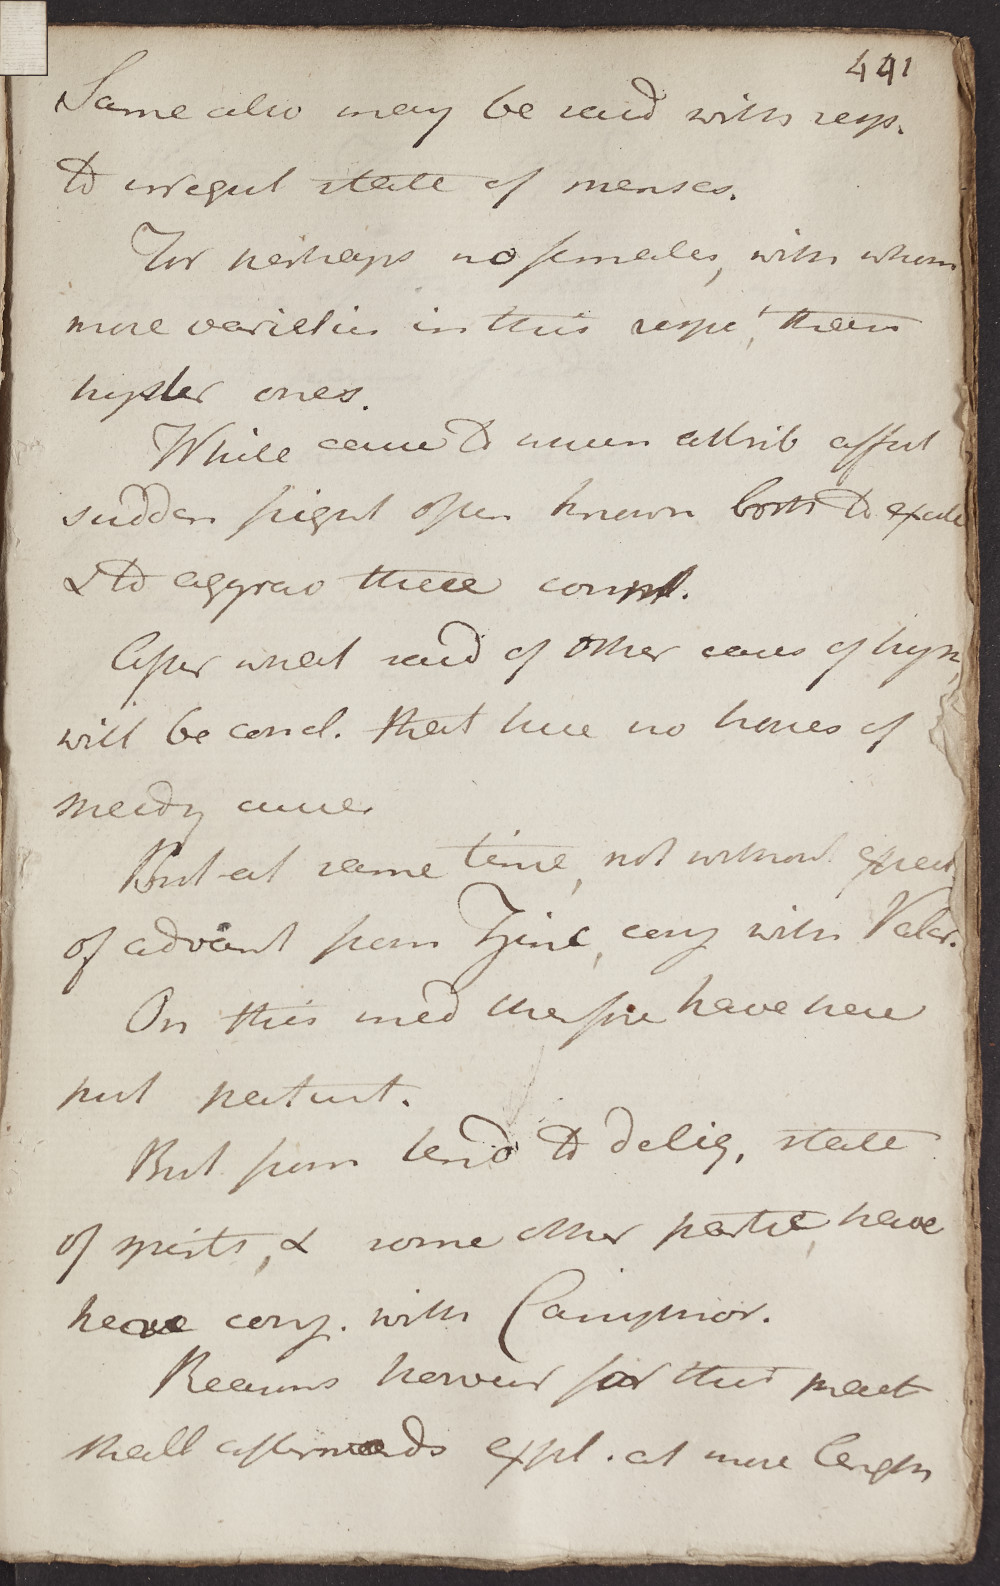 441
Same also may be said with resp.
to irregul state of menses.
For perhaps no females, with whom
more varieties in this respe', than
hyster ones.
While came to attrib
sudden fright often known both to excite
& to aggrav these compl.
After what said of other cases of hyst,
will be concl. that here no hopes of
speedy cure.
But at same time, not without expect
of advant from conj with Valer.
On this med therefore have here
put patient.
But from tend to deliq. state
of spirits, & some other partic, have
here conj. with Camphor.
Reasons however for this pract
shall afterwards expl. at more length